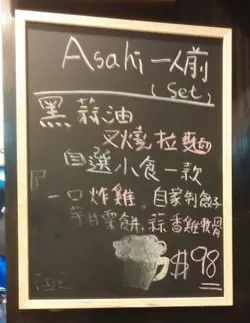 Asahi 一人前
(Set)
黑蒜油
叉燒拉麵
自選小食一款
一口炸雞, 自家制餃子
芋甘栗餅, 蒜香雞軟骨
$98